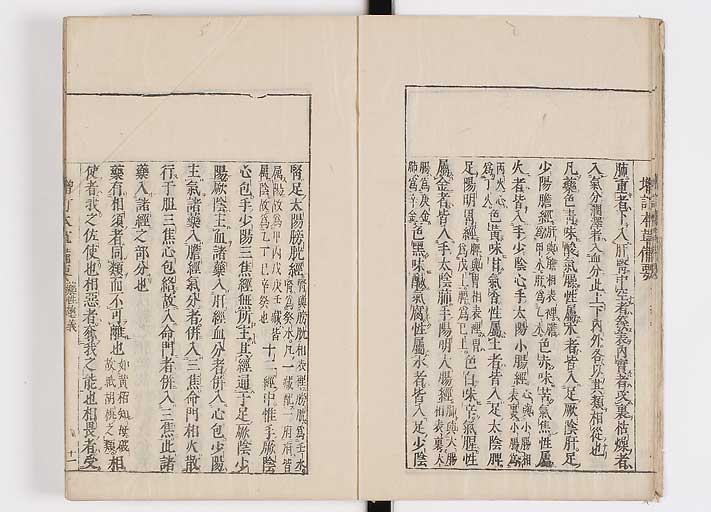 增訂本草備要
肺重者下入肝腎中空者發表內實者攻裏枯燥者
入氣分潤澤者入血分此上下內外各以其類相從也
凡藥色青味酸氣臊性屬木者皆入足厥陰肝足
少陽膽經肝與膽相表裏膽爲甲木肝爲乙木色赤味苦氣焦性屬
火者皆入手少陰心手太陽小腸經心與小腸相表裏小腸爲
丙火心爲丁火色黃味甘氣香性屬土者皆入足太陰脾
足陽明胃經脾與胃相表裏胃爲戊土脾爲己土色白味辛氣腥性
屬金者皆入手太陰肺手陽明大腸經肺與大腸相表裏大
腸爲庚金肺爲辛金色黑味鹹氣腐性屬水者皆入足少陰
腎足太陽膀胱經腎與膀胱相表裏膀胱爲壬水腎爲癸水凡一臟配一腑腑皆
屬陽故爲甲丙戊庚壬臟皆屬陰故爲乙丁己辛癸也十二經中惟手厥陰
心包手少陽三焦經無所主其經通于足厥陰少
陽厥陰主血諸藥入肝經血分者併入心包少陽
主氣諸藥入膽經氣分者併入三焦命門相火散
行于膽三焦心包絡故入命門者併入三焦此諸
藥入諸經之部分也
藥有相須者同類而不可離也如黃柏知母破故紙胡桃之類相
使者我之佐使也相惡者奪我之能也相畏者受
增訂本草備要 藥性總義 十一